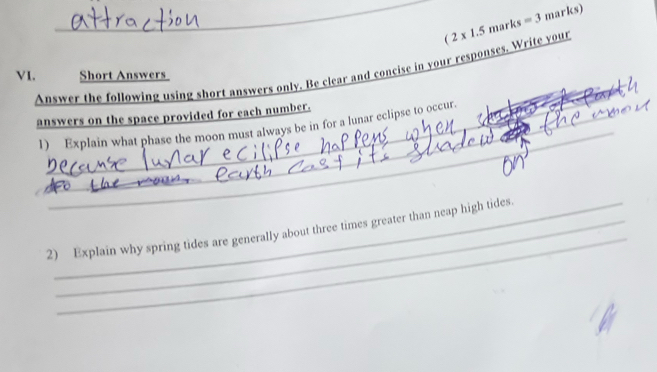 attraction
(2 x 1.5 marks = 3 marks)
VI. Short Answers
Answer the following using short answers only. Be clear and concise in your responses. Write your
answers on the space provided for each number.
1) Explain what phase the moon must always be in for a lunar eclipse to occur.
because lunar ecilipse happens when shadow of Earth
to the moon, earth cast its shadow on the moon
2) Explain why spring tides are generally about three times greater than neap high tides.